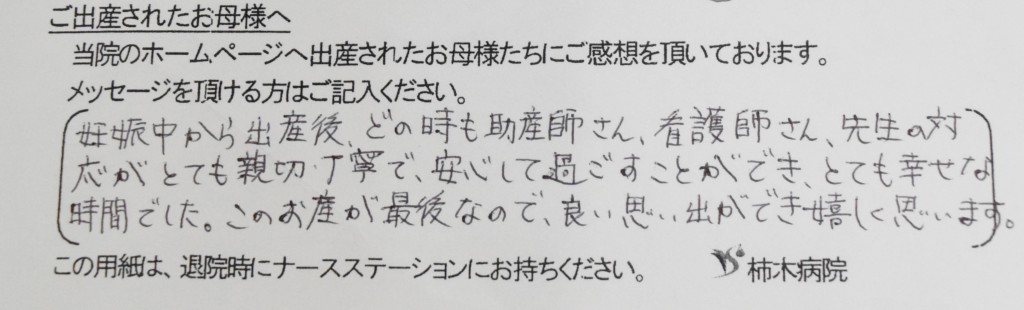 ご出産されたお母様へ
当院のホームページへ出産されたお母様たちにご感想を頂いております。
メッセージを頂ける方はご記入ください。
妊娠中から出産後、どの時も助産師さん、看護師さん、先生の対
応がとても親切・丁寧で、安心して過ごすことができ、とても幸せな
時間でした。このお産が最後なので、良い思い出ができ嬉しく思います。
この用紙は、退院時にナースステーションにお持ちください。
柿木病院